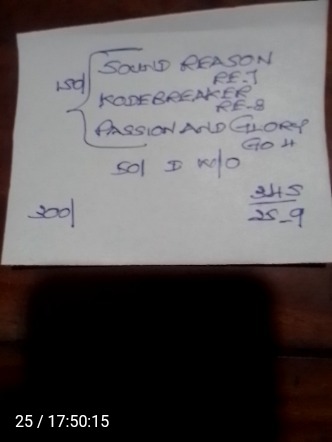 150/ SOUND REASON
RE-7
KODEBREAKER
RE-8
PASSION AND GLORY
GO 4
50/ D W/O
300/
345
25-9
25 / 17:50:15